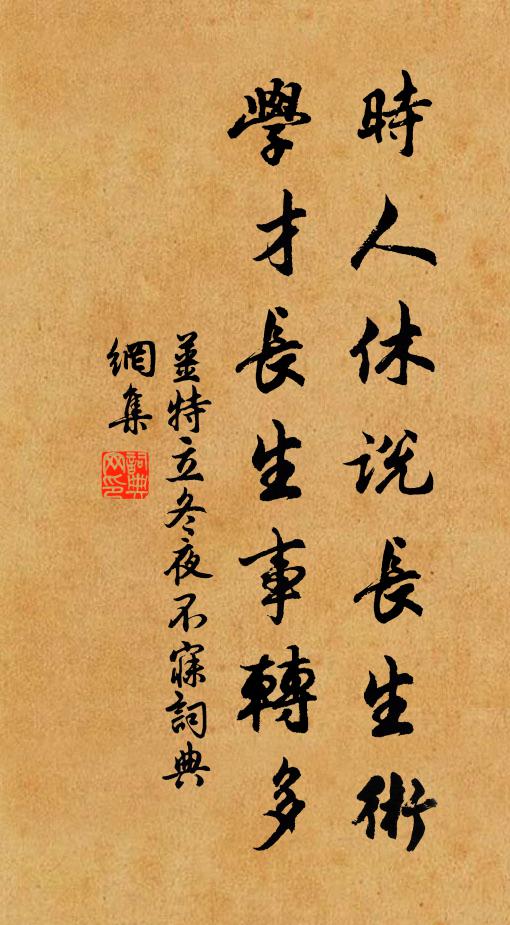 時人休説長生術
學才長生事轉多
姜特立冬夜不寐詞典
網集
詞典
网印